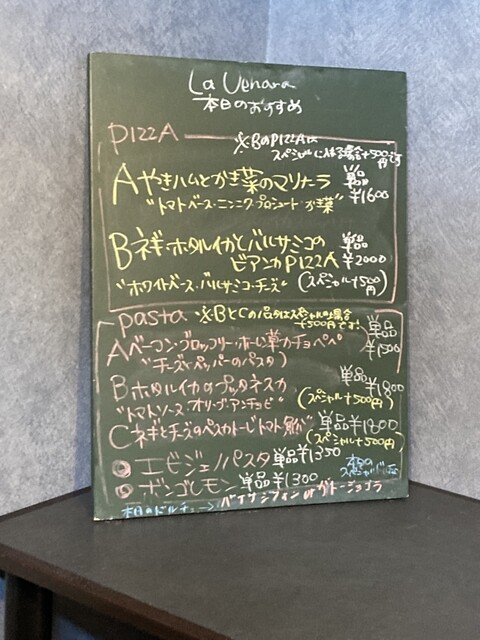 La Venara
本日のおすすめ
PIZZA
※BのPIZZAは
スペシャルに体場合+500円です
A やきハムとかき菜のマリナーラ 単品
"トマトベース・ニンニク・プロシュート・かき菜" ¥1600
B ネギ・ホタルイカとバルサミコの 単品
ビアンカPIZZA ¥2000
"ホワイトベース・バルサミコ・チーズ" (スペシャル+500円)
pasta ※BとCのパスタはスペシャルの場合
+500円です!
A ベーコン・ブロッコリー・ホーレン草カチョペペ 単品
"チーズとペッパーのパスタ) ¥1500
B ホタルイカのプッタネスカ 単品 ¥1800
"トマトソース・オリーブ・アンチョビ" (スペシャル+500円)
C ネギとチーズのペスカトーレ"トマト魚介" 単品¥1800
(スペシャル+500円)
◎ エビジェノパスタ 単品¥1350
◎ ボンゴレモン 単品¥1300
本日のスペシャル
本日のドルチェ〜 or ガトーショコラ